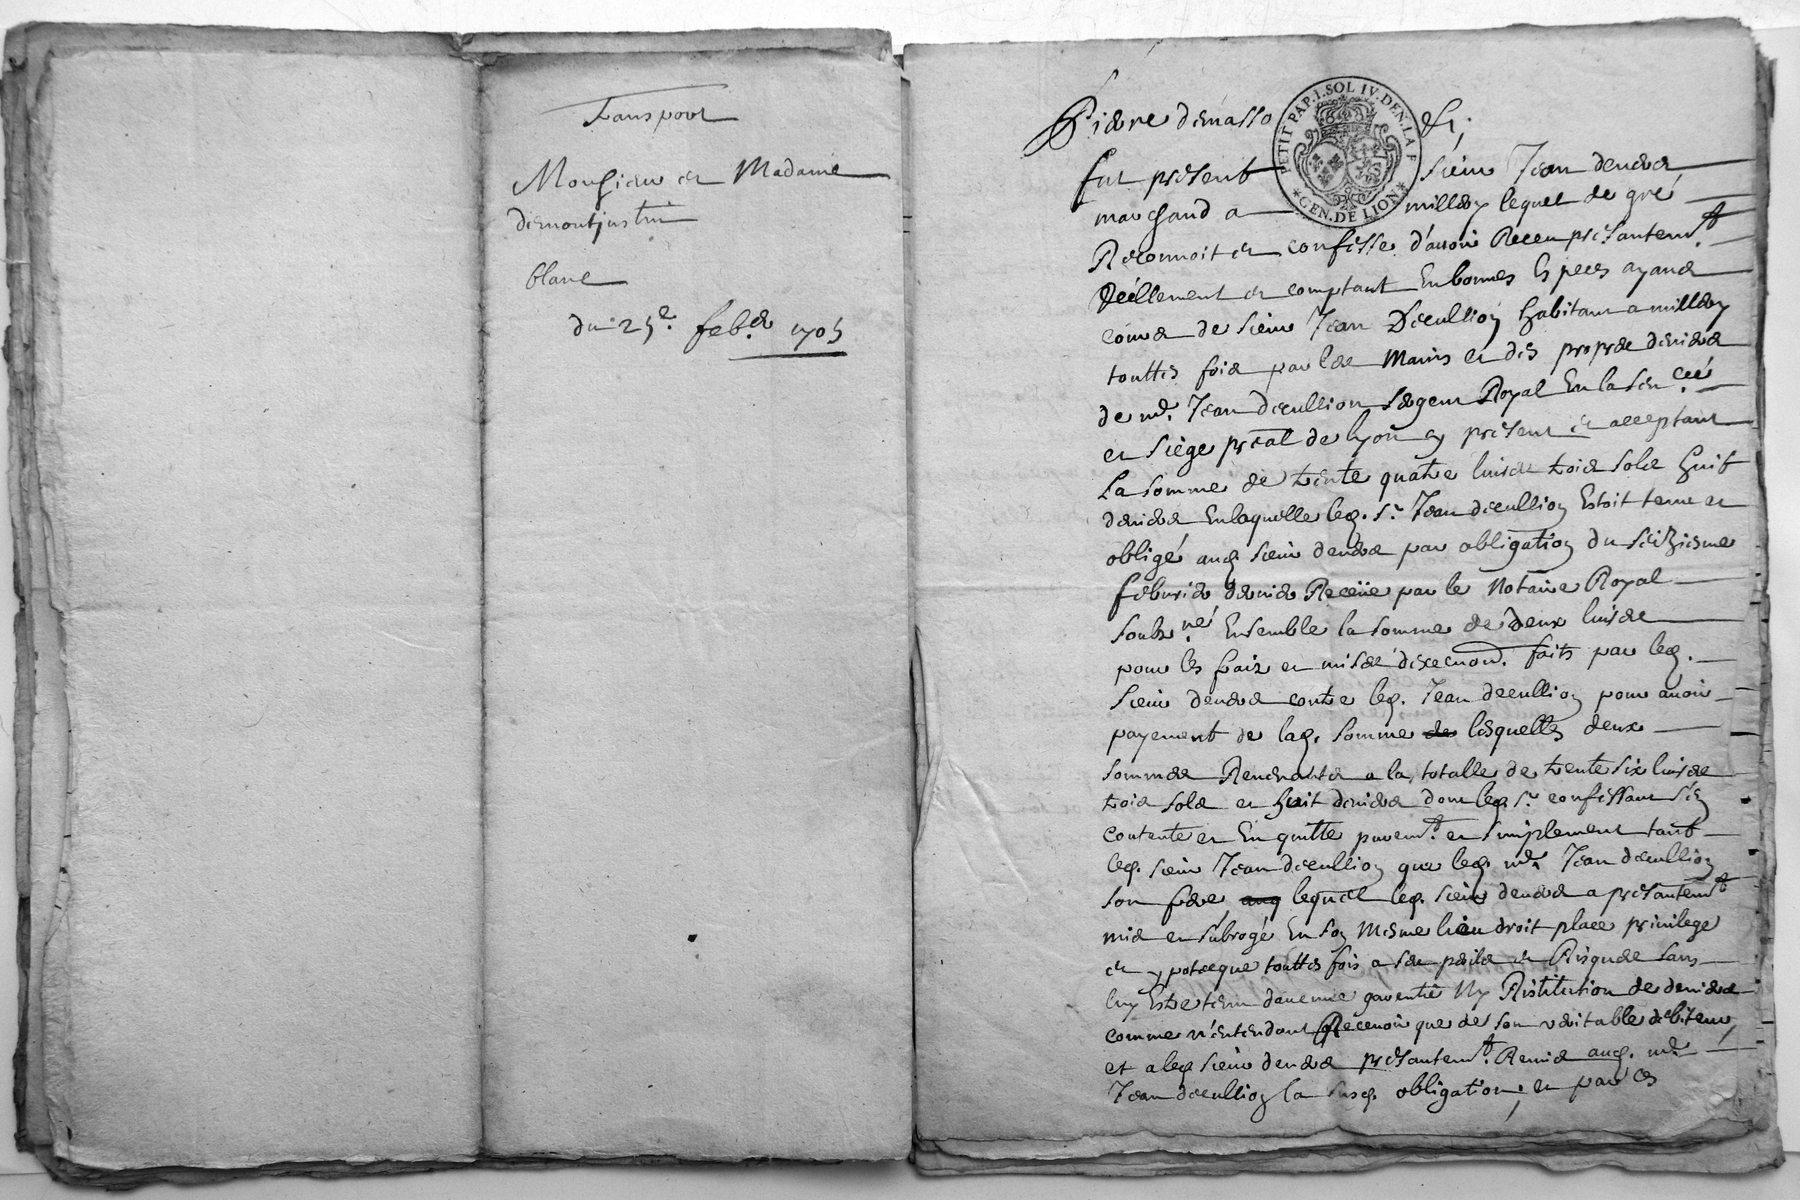 Transport
Monsieur et Madame
demontjustin
blanc
du 25e. feb.er 1705
Pierre demasso &c;
PETIT PAP. I. SOL IV. DEN. LA F
GEN. DE LION
fut présent sieur Jean
marchand a millery lequel de gré
Reconnoit et confesse d'avoir Receu présantemt.
Réellement et comptant En bonnes Especes ayant
cours de sieur Jean Decullion habitant a millery
touttes fois par les Mains et des propres deniers
de me. Jean decullion sergent Royal En la sen.cée
et siège préal de lyon cy présent et acceptant
La somme de trente quatre livres trois sols huit
deniers En laquelle led. sr. Jean decullion Estoit tenu et
obligé aud. sieur par obligation du seiziesme
febvrier dernier Receüe par le Notaire Royal
soubz.né Ensemble la somme de deux livres
pour les fraix et mises d'execuon. faits par led.
sieur contre led. Jean decullion pour avoir
payement de lad. somme lesquelles deux
sommes Revenantes a la totalle de trente six livres
trois sols et huit deniers dont led. sr. confessant s'en
contente et En quitte puremt. et simplement tant
led. sieur Jean decullion que led. me. Jean decullion
son frere lequel led. sieur a présantemt.
mis et subrogé En son Mesme lieu droit place privilege
et ypotecque touttes fois a ses perils et Risques sans
luy Estre tenu d'aucune garentie Ny Restitution de deniers
comme n'entendant Recevoir que de son veritable debiteur,
et a led. sieur présantemt. Remis aud. me.
Jean decullion la susd. obligation; et par ces